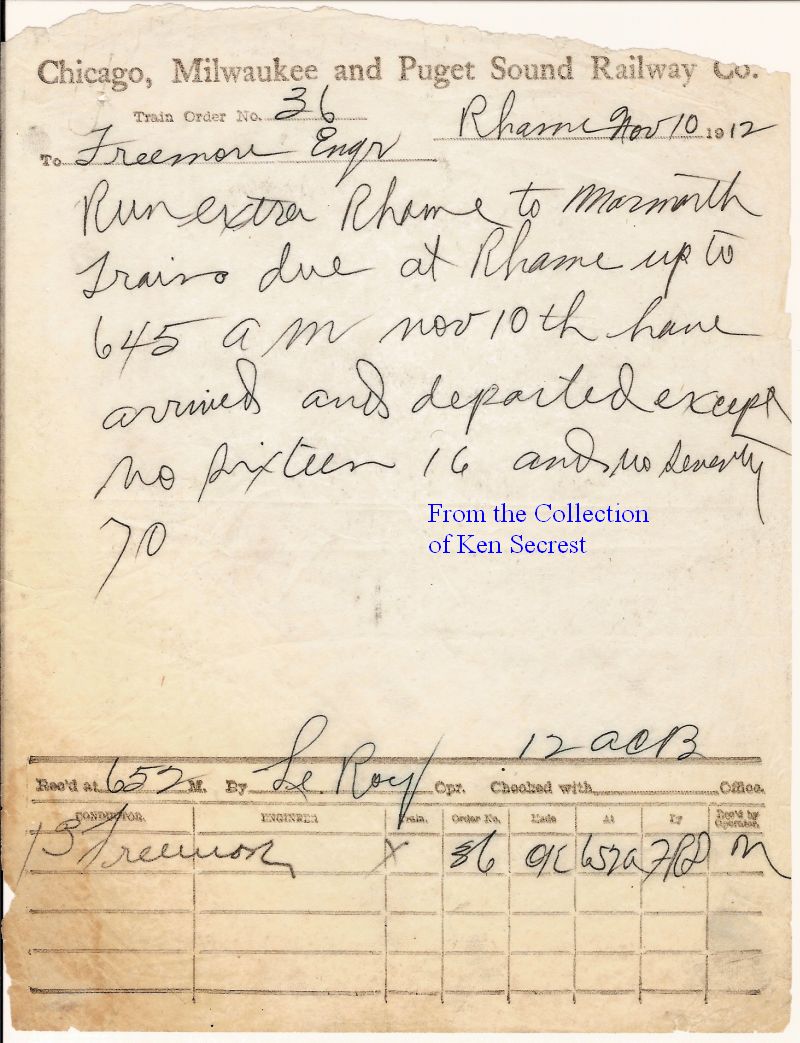 Chicago, Milwaukee and Puget Sound Railway Co.
Train Order No. 36
Rhame Nov 10 1912
To Freemore Engr
Run extra Rhame to Marmarth
Trains due at Rhame up to
645 a m nov 10th have
arrived and departed except
no sixteen 16 and no seventy
70
From the Collection
of Ken Secrest
12 ACB
Rec'd at 652 M. By Le Roy Opr. Checked with Office.
CONDUCTOR. ENGINEER Train. Order No. Made At By Rec'd by Operator.
Freemore X 36 OK 652a FRD M